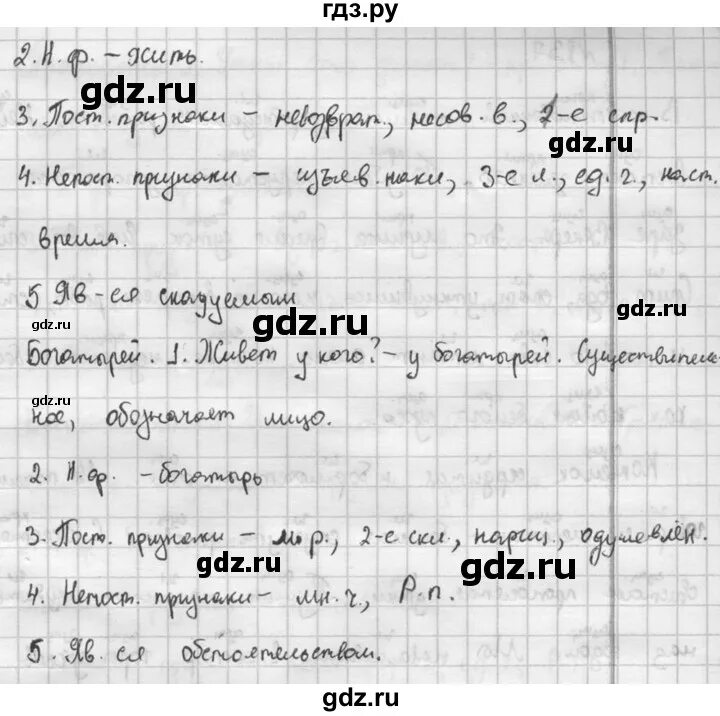 гдз.ру
2. Н. ф. – жить.
gdz.ru
gdz.ru
3. Пост. признаки – невозврат., несов. в., 2-е спр.
4. Непост. признаки – изъяв. накл., 3-е л., ед. ч., наст.
время.
5 Яв-ся сказуемым
gdz.ru
gdz.ru
gdz.ru
Богатырей. 1. Живет у кого? – у богатырей. Существитель-
ное, обозначает лицо.
2. Н. ф. – богатырь
3. Пост. признаки – м р., 2-е скл., нариц., одушевлён.
gdz.ru
gdz.ru
4. Непост. признаки – мн. ч., Р. п.
5. Яв. ся обстоятельством.
gdz.ru
gdz.ru
gdz.ru
gdz.ru